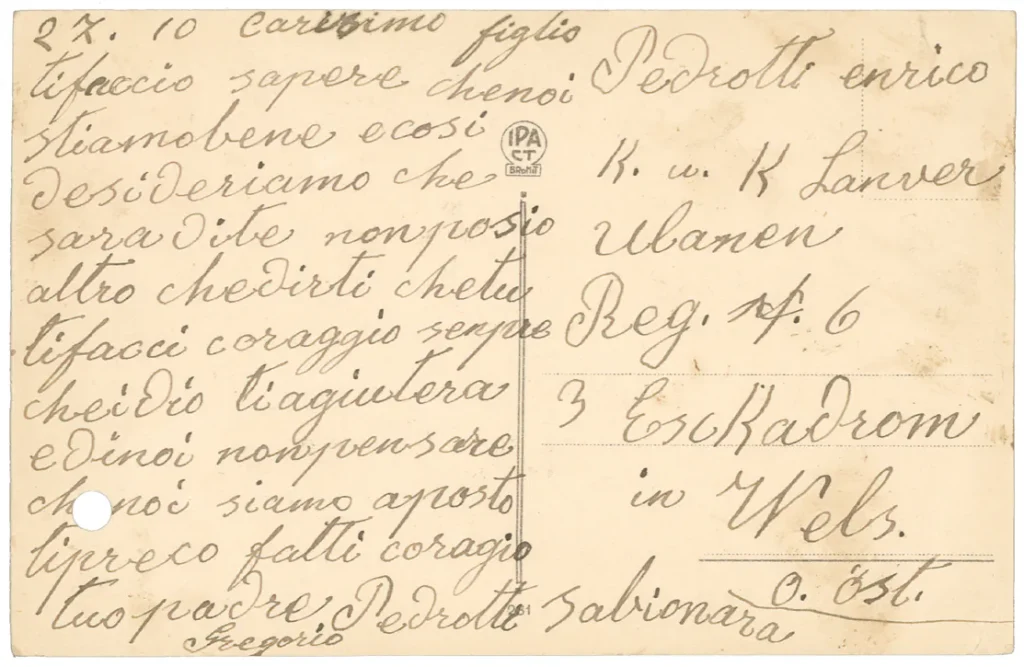 27. 10 Carisimo figlio
tifaccio sapere chenoi
stiamobene ecosi
desideriamo che
sara dite nonposio
altro chedirti chetu
tifacci coraggio senpre
cheidio tiagiutera
edinoi nonpensare
chenoi siamo aposto
tipreco fatti coragio
tuo padre Pedrotti Sabionara
Gregorio
Pedrotti enrico
K. u. K Lanver
Ulanen
Reg. N. 6
3 EscKadrom
in Wels.
O. öst.
IPA
CT
261